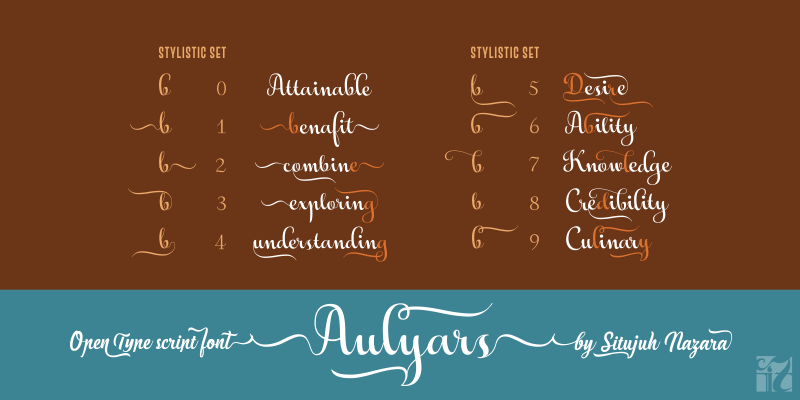 STYLISTIC SET
b 0 Attainable
b 1 benafit
b 2 combine
b 3 exploring
b 4 understanding
STYLISTIC SET
b 5 Desire
b 6 Ability
b 7 Knowledge
b 8 Credibility
b 9 Culinary
Open Type script font Aulyars by Situjuh Nazara